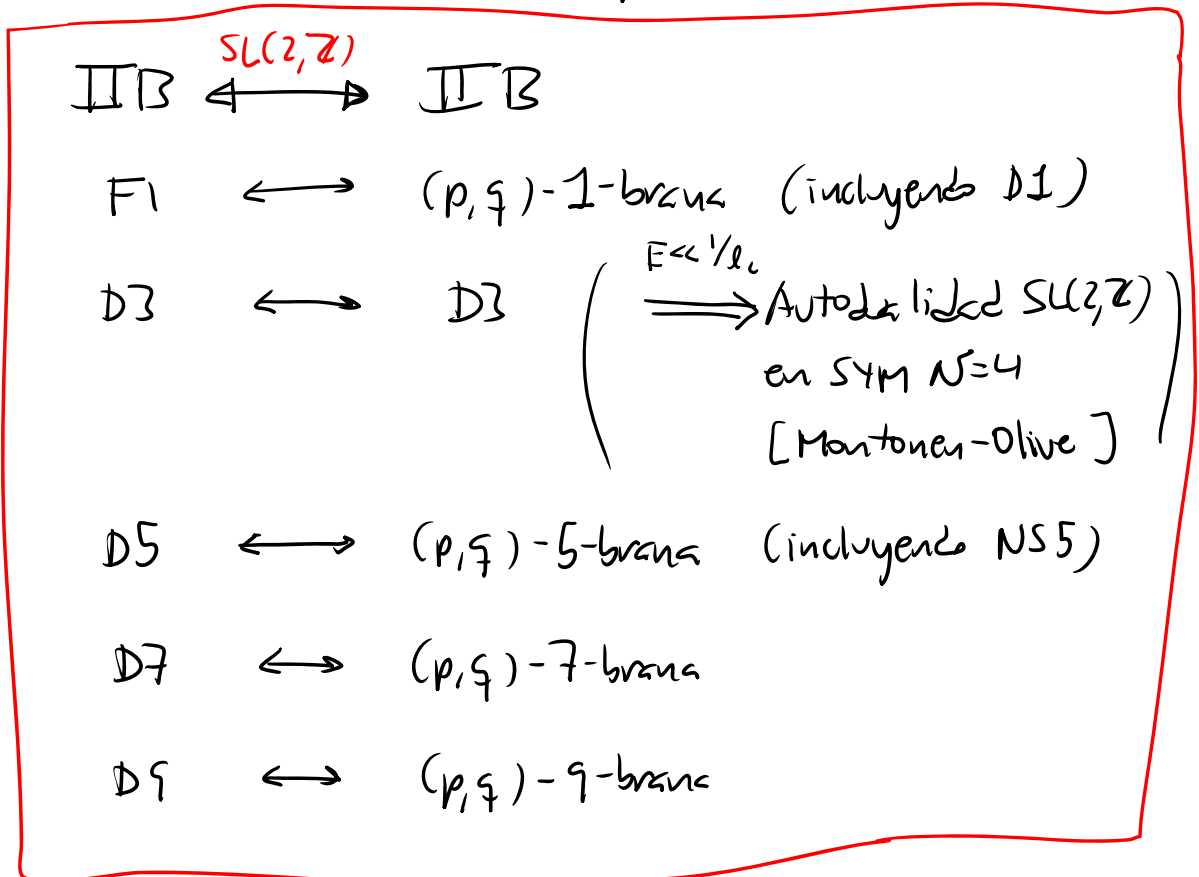 SL(2,ℤ)
IIB ⟷ IIB
F1 ⟷ (p,q)-1-brana (incluyendo D1)
E<<1/ls
D3 ⟷ D3 ( ⟹ Autodualidad SL(2,ℤ)
en SYM N=4
[Montonen-Olive] )
D5 ⟷ (p,q)-5-brana (incluyendo NS5)
D7 ⟷ (p,q)-7-brana
D9 ⟷ (p,q)-9-brana